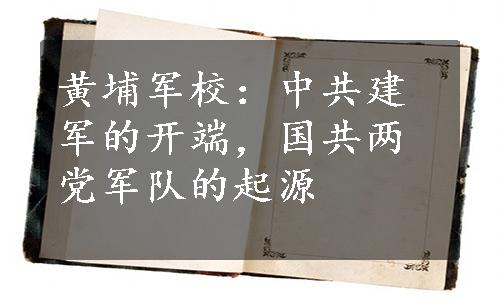 黄埔军校：中共建
军的开端，国共两
党军队的起源